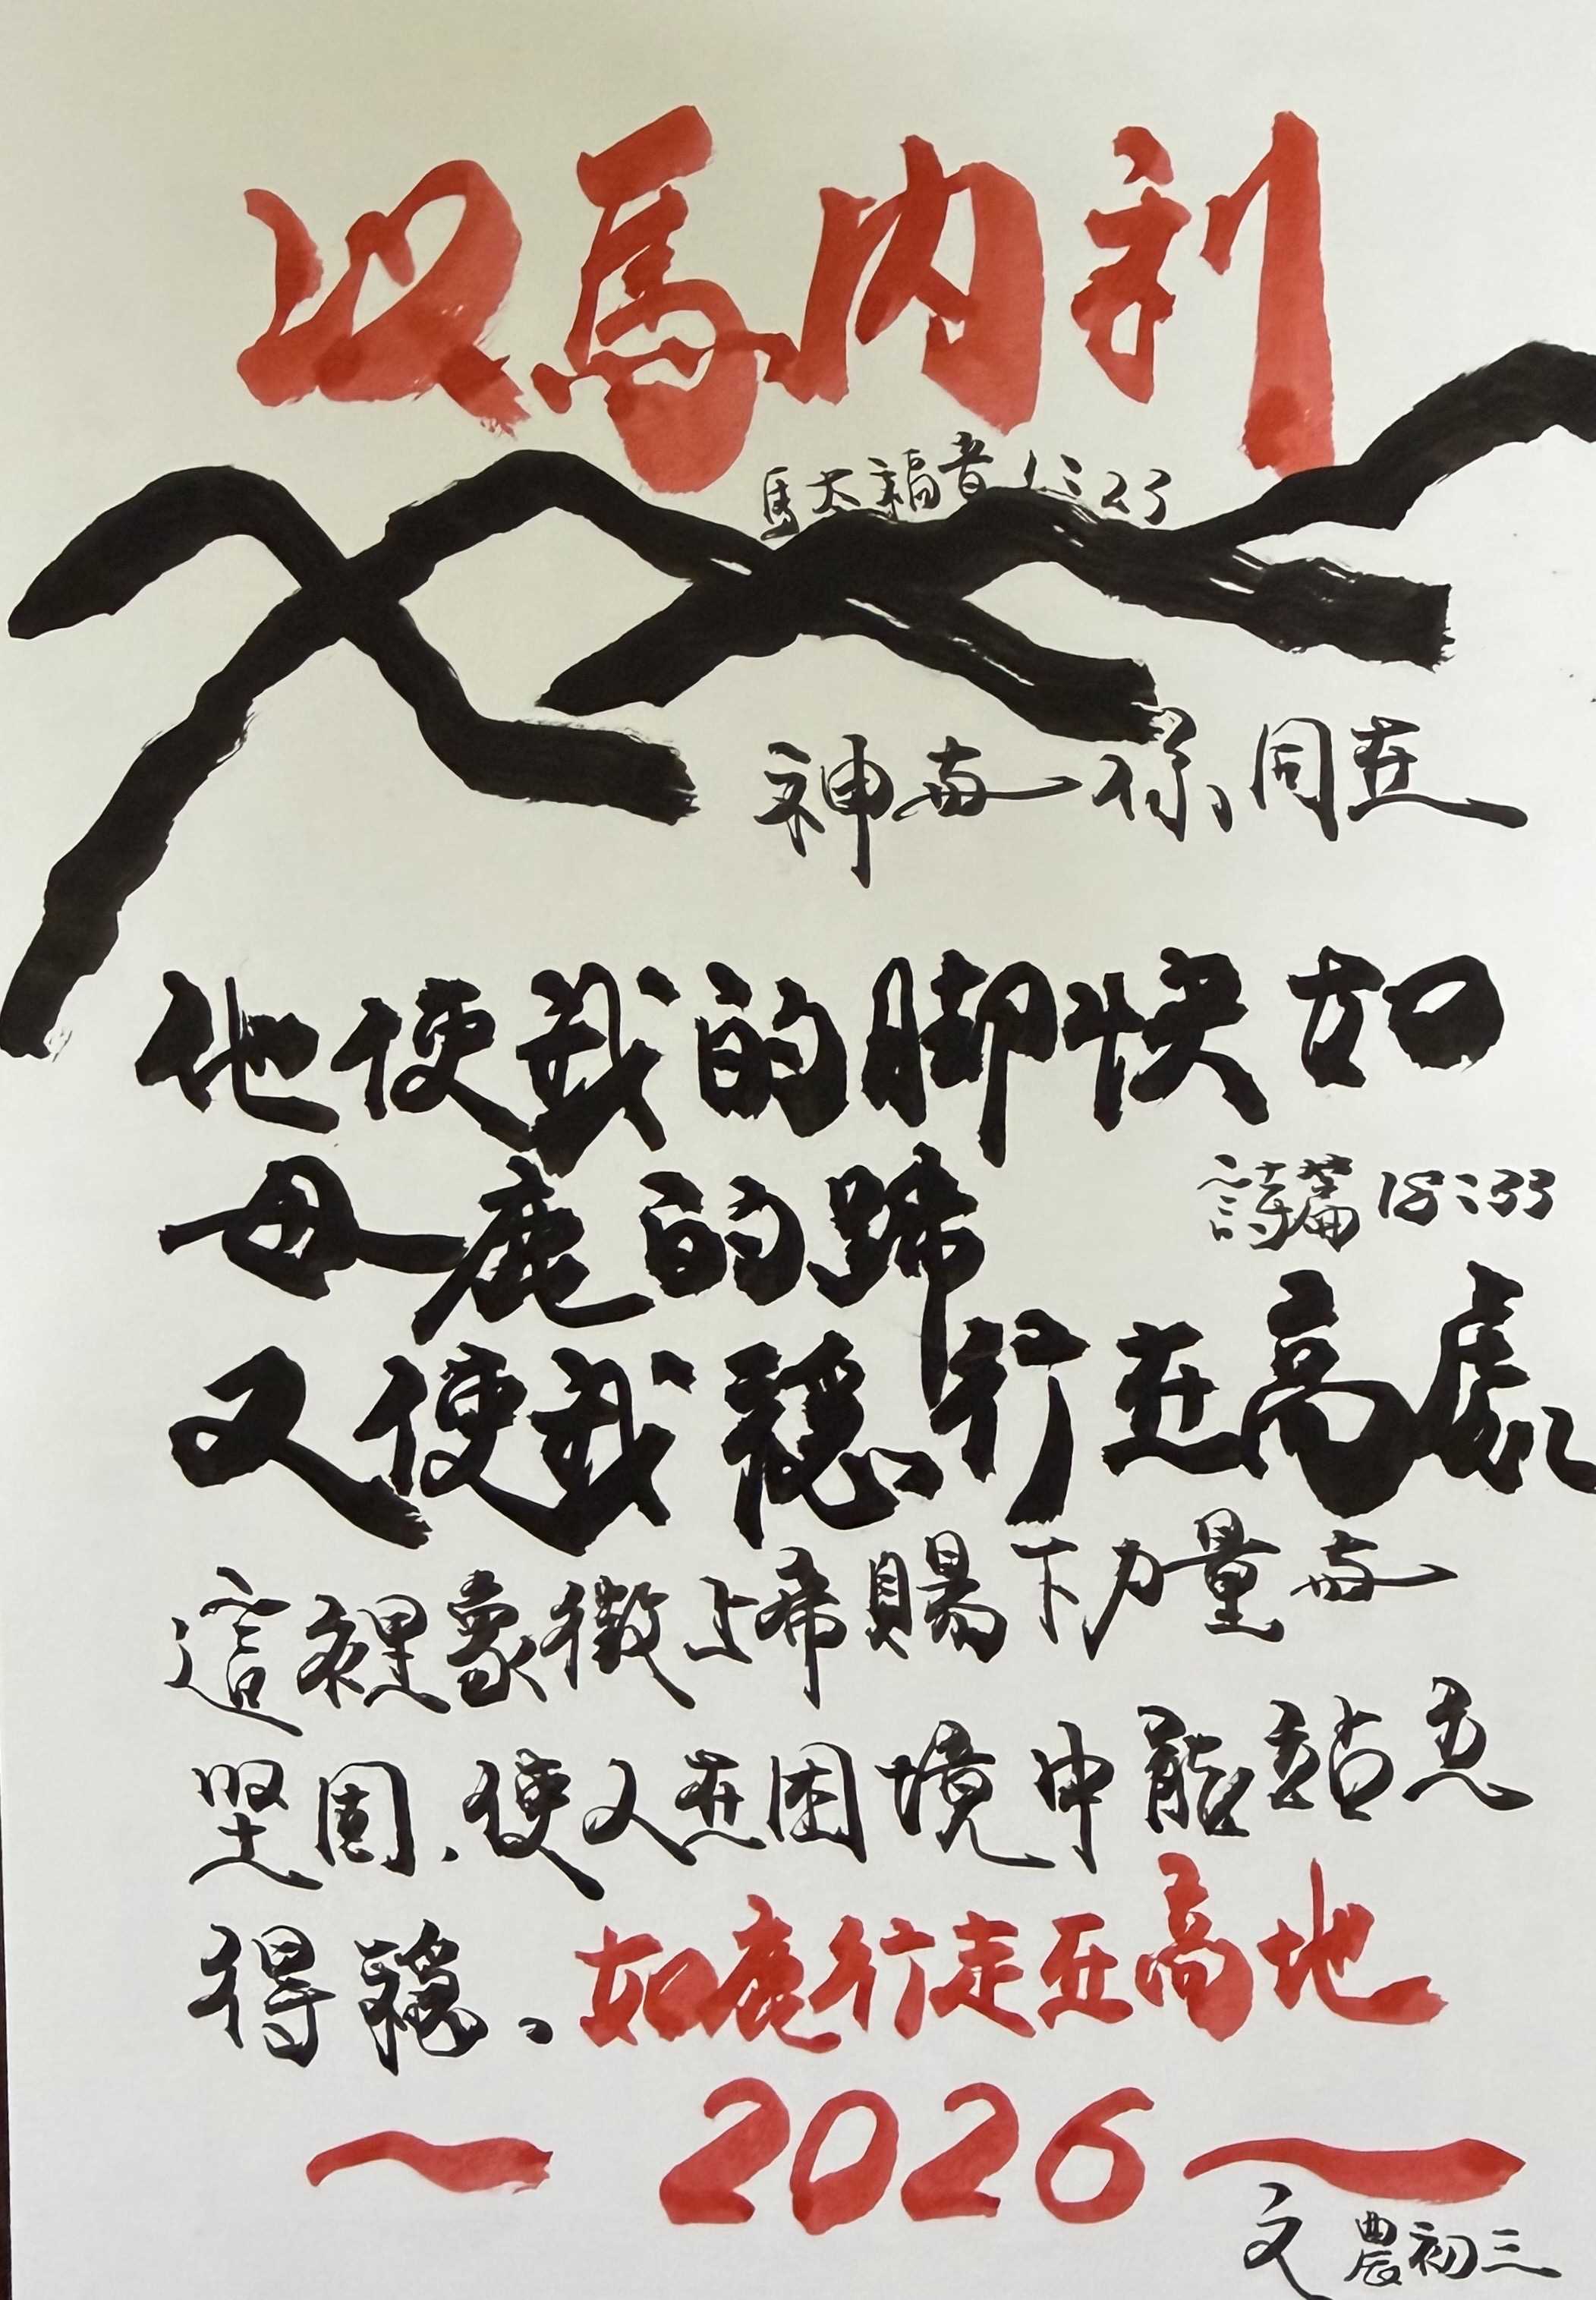 以馬內利
馬太福音1:23
神與你同在
他使我的腳快如
母鹿的蹄
詩篇18:33
又使我穩行在高處
這裡象徵上帝賜下力量與
堅固、使人在困境中能站立
得穩。如鹿行走在高地
～2026～
文 農初三